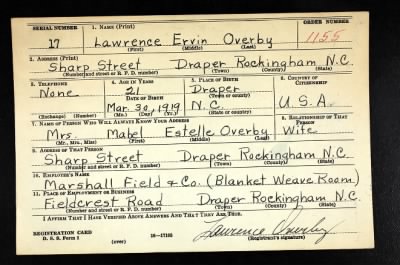 SERIAL NUMBER 1. NAME (Print) ORDER NUMBER
17 Lawrence Ervin Overby 1155
(First) (Middle) (Last)
2. ADDRESS (Print)
Sharp Street Draper Rockingham N.C.
(Number and street or R. F. D. number) (Town) (County) (State)
3. TELEPHONE 4. AGE IN YEARS 5. PLACE OF BIRTH 6. COUNTRY OF CITIZENSHIP
None 21 Draper
DATE OF BIRTH (Town or county)
Mar. 30, 1919 N.C. U.S.A.
(Exchange) (Number) (Mo.) (Day) (Yr.) (State or country)
7. NAME OF PERSON WHO WILL ALWAYS KNOW YOUR ADDRESS 8. RELATIONSHIP OF THAT PERSON
Mrs. Mabel Estelle Overby Wife
(Mr., Mrs., Miss) (First) (Middle) (Last)
9. ADDRESS OF THAT PERSON
Sharp Street Draper Rockingham N.C.
(Number and street or R. F. D. number) (Town) (County) (State)
10. EMPLOYER'S NAME
Marshall Field & Co. (Blanket Weave Room)
11. PLACE OF EMPLOYMENT OR BUSINESS
Fieldcrest Road Draper Rockingham N.C.
(Number and street or R. F. D. number) (Town) (County) (State)
I AFFIRM THAT I HAVE VERIFIED ABOVE ANSWERS AND THAT THEY ARE TRUE.
REGISTRATION CARD
D. S. S. Form 1 (over) 16—17105
Lawrence Overby
(Registrant's signature)